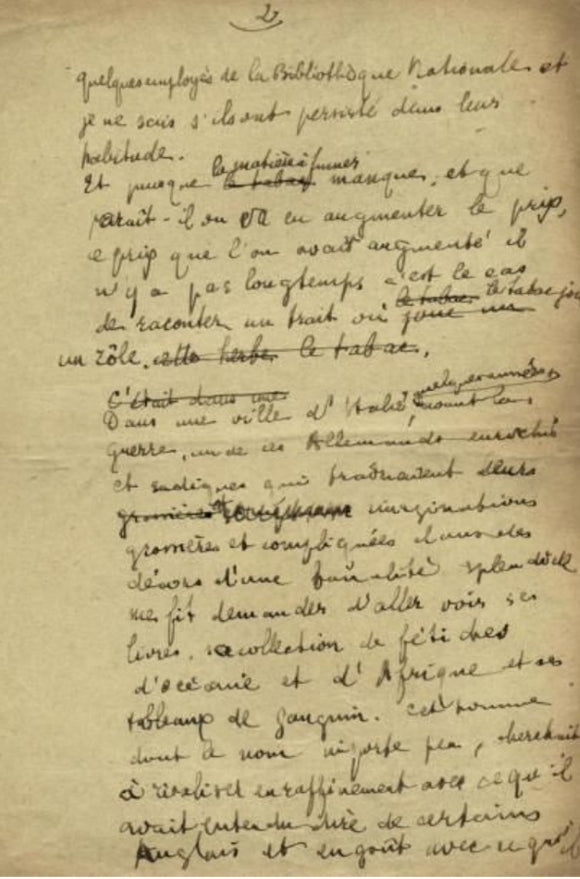 2
quelques employés de la Bibliothèque Nationale et
je ne sais s'ils ont persisté dans leur
habitude.
la matière à fumer
Et puisque le tabac manque, et que
paraît-il on va en augmenter le prix,
ce prix que l'on avait augmenté il
n'y a pas longtemps c'est le cas
le tabac le tabac joue
de raconter un trait où joue un
un rôle. cette herbe. le tabac.
C'était dans une
quelques années
Dans une ville d'Italie avant la
guerre, un de ces Allemands enrichis
et sadiques qui traînaient leurs
grossières imaginations
grossières et compliquées dans des
décors d'une banalité splendide
me fit demander d'aller voir ses
livres, sa collection de fétiches
d'océanie et d'Afrique et ses
tableaux de Gauguin. Cet homme
dont le nom importe peu, cherchait
à rivaliser en raffinement avec ce qu'il
avait entendu dire de certains
Anglais et en goût avec ce qu'il